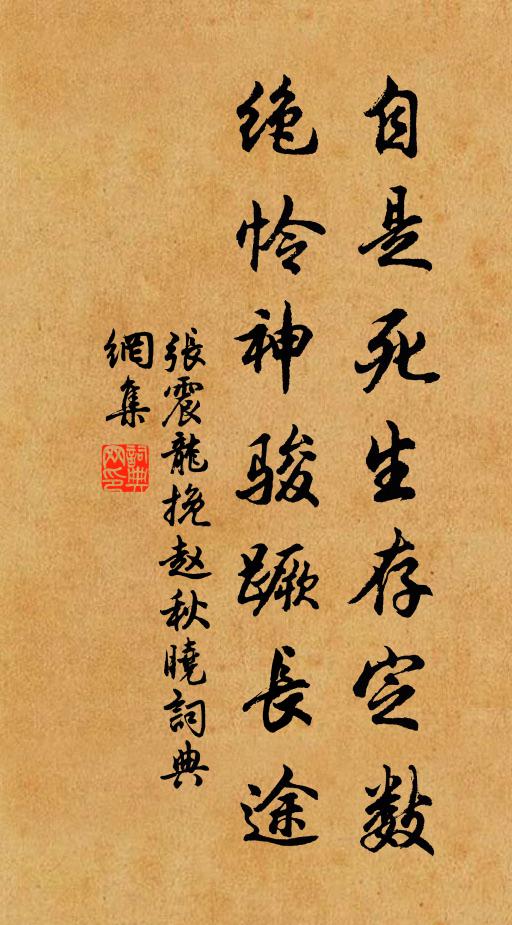 自是死生存定数
绝怜神骏蹶長途
張震龍挽赵秋曉詞典
網集
詞典網印